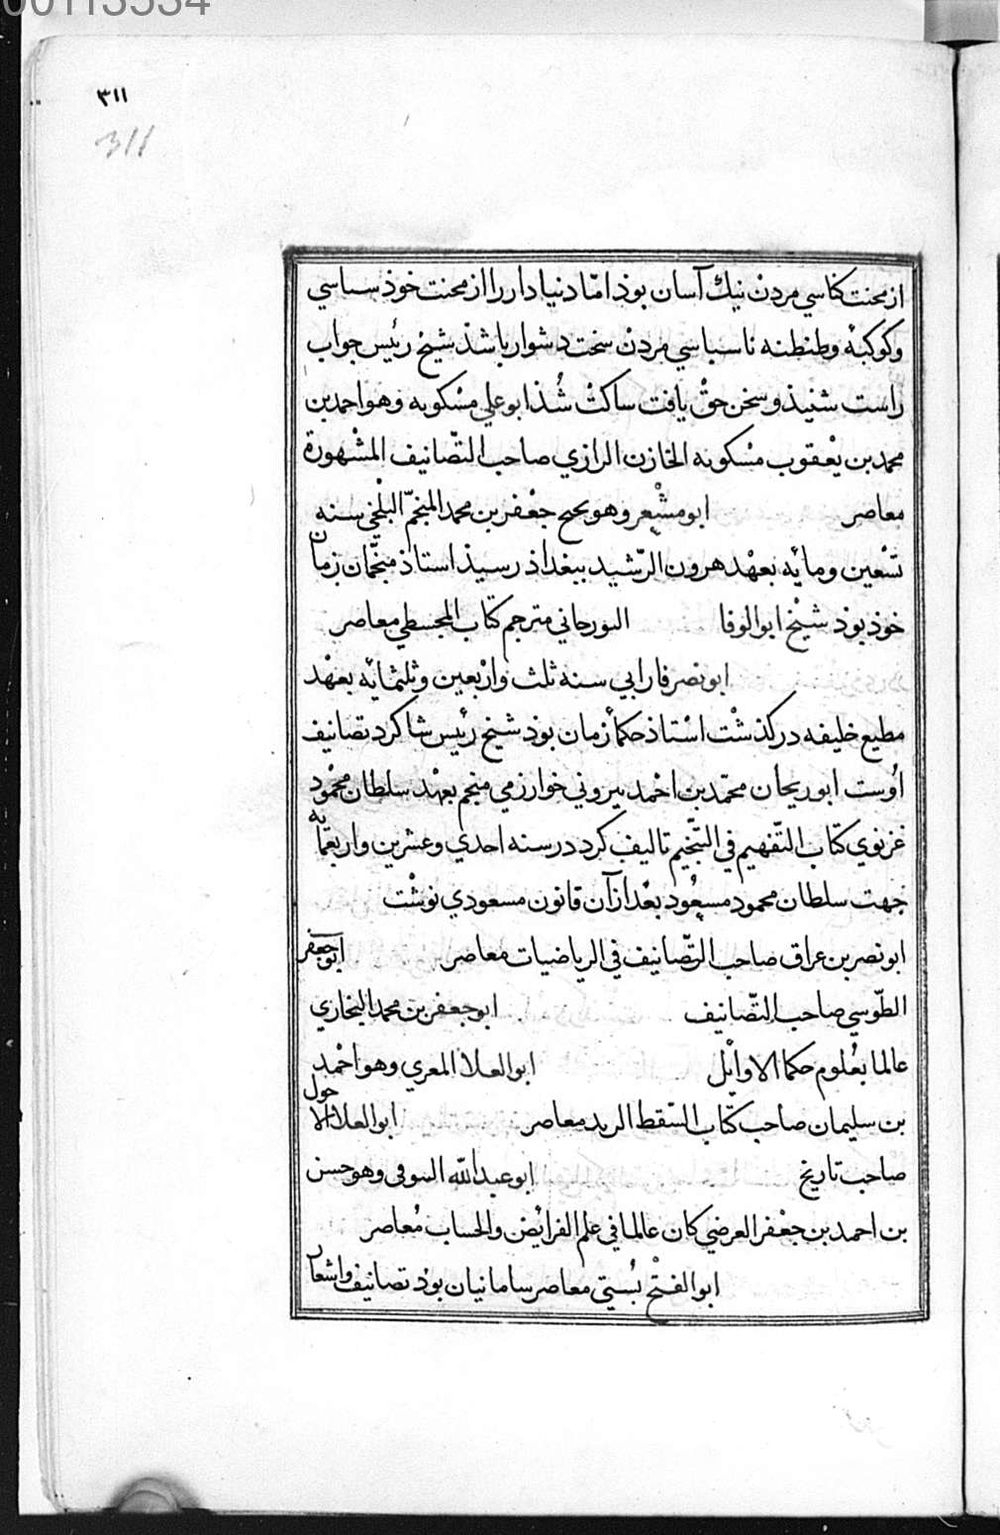 00113534
٣١١
311
از محنت کناسي مردن نيك آسان بوذ امّا دنيادار را از محنت خوذ سباسي
وکوکبۀ وطنطنه ناسباسي مردن سخت دشوار باشذ شيخ رئيس جواب
راست شنيذ و سخن حقْ يافت ساکتْ شُذ ابوعلي مسْکويه وهو احمد بن
محمد بن يعْقوب مسْکويه الخازن الرازي صاحب التّصانيف المشْهورة
معاصر ابو مشْعر وهو يحيى جعْفر بن محمد المنجّم البلْخي سنه
تسْعين ومائه بعهْد هرون الرّشيد ببغداذ رسيذ استاذ منجّمان زمان
خوذ بوذ شيْخ ابو الوفا البورجاني مترجم کتاب المجسطي معاصر
ابونصر فارابي سنه ثلث واربعين وثلثمائه بعهْد
مطيع خليفه درکذشْت اسْتاذ حکماء زمان بوذ شيخ رئيس شاکرد تصانيف
اوست ابو ريحان محمّد بن احْمد بيروني خوارزمي منجم بعهْد سلطان محْمود
غزنوي کتاب التّفهيم في التّنْجيم تاليف کرد در سنه احدي وعشرين واربعمايه
جهت سلطان محمود مسعُود بعْد از آن قانون مسعودي نوشْت
ابو نصر بن عراق صاحب التّصانيف في الرياضيات معاصر ابو جعفر
الطّوسي صاحب التّصانيف ابو جعفر بن محمد البخاري
عالما بعُلوم حکما الاوائل ابو العلا المعري وهو احْمد
بن سليمان صاحب کتاب السّقط الزند معاصر ابو العلا الاحول
صاحب تاريخ ابو عبد اللّه السوفى وهو حسن
بن احمد بن جعْفر العرضي کان عالما في علم الفرايْض والحساب مُعاصر
ابو الفتْح بُستي معاصر سامانيان بوذ تصانيف واشعار